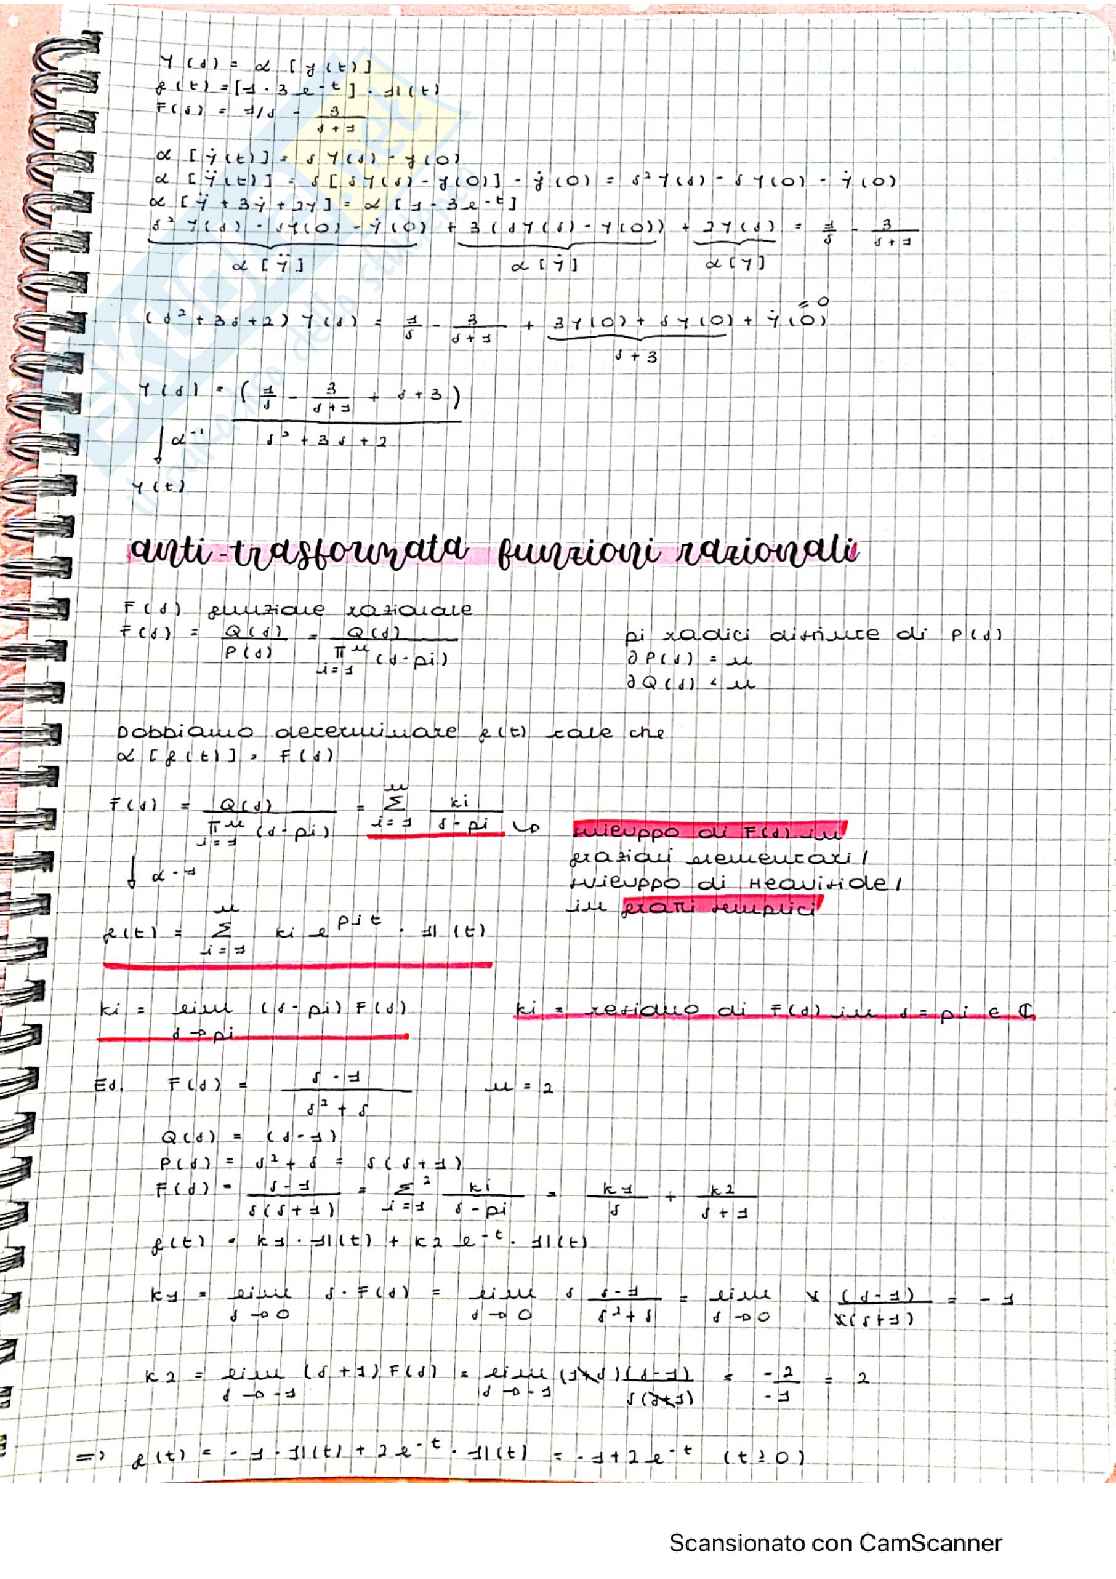 Y(s) = α [y(t)]
f(t) = [1 - 3e^-t] · 1(t)
F(s) = 1/s - 3/(s+1)
α [ẏ(t)] = sY(s) - y(0)
α [ÿ(t)] = s[sY(s) - y(0)] - ẏ(0) = s²Y(s) - sY(0) - ẏ(0)
α [ÿ + 3ẏ + 2y] = α [1 - 3e^-t]
s²Y(s) - sY(0) - ẏ(0) + 3(sY(s) - Y(0)) + 2Y(s) = 1/s - 3/(s+1)
α [ÿ] α [ẏ] α [y]
= 0
(s² + 3s + 2) Y(s) = 1/s - 3/(s+1) + 3Y(0) + sY(0) + ẏ(0)
s + 3
Y(s) = (1/s - 3/(s+1) + s + 3) / (s² + 3s + 2)
↓ α^-1
y(t)
anti-trasformata funzioni razionali
F(s) funzione razionale
F(s) = Q(s)/P(s) = Q(s)/(π^n i=1 (s-pi)) pi radici distinte di P(s)
∂P(s) = n
∂Q(s) < n
Dobbiamo determinare f(t) tale che
α [f(t)] = F(s)
F(s) = Q(s)/(π^n i=1 (s-pi)) = Σ^n i=1 ki/(s-pi) ↳ sviluppo di F(s) in
frazioni elementari/
sviluppo di Heaviside/
in fratti semplici
↓ α^-1
f(t) = Σ^n i=1 ki e^pit · 1(t)
ki = lim s→pi (s-pi) F(s) ki = residuo di F(s) in s = pi ∈ ℂ
Es. F(s) = (s-1)/(s²+s) n = 2
Q(s) = (s-1)
P(s) = s² + s = s(s+1)
F(s) = (s-1)/(s(s+1)) = Σ² i=1 ki/(s-pi) = k1/s + k2/(s+1)
f(t) = k1 · 1(t) + k2 e^-t · 1(t)
k1 = lim s→0 s · F(s) = lim s→0 s (s-1)/(s²+s) = lim s→0 s (s-1)/(s(s+1)) = -1
k2 = lim s→-1 (s+1) F(s) = lim s→-1 (1+s)(s-1)/(s(s+1)) = -2/-1 = 2
=> f(t) = -1 · 1(t) + 2e^-t · 1(t) = -1 + 2e^-t (t≥0)
Scansionato con CamScanner